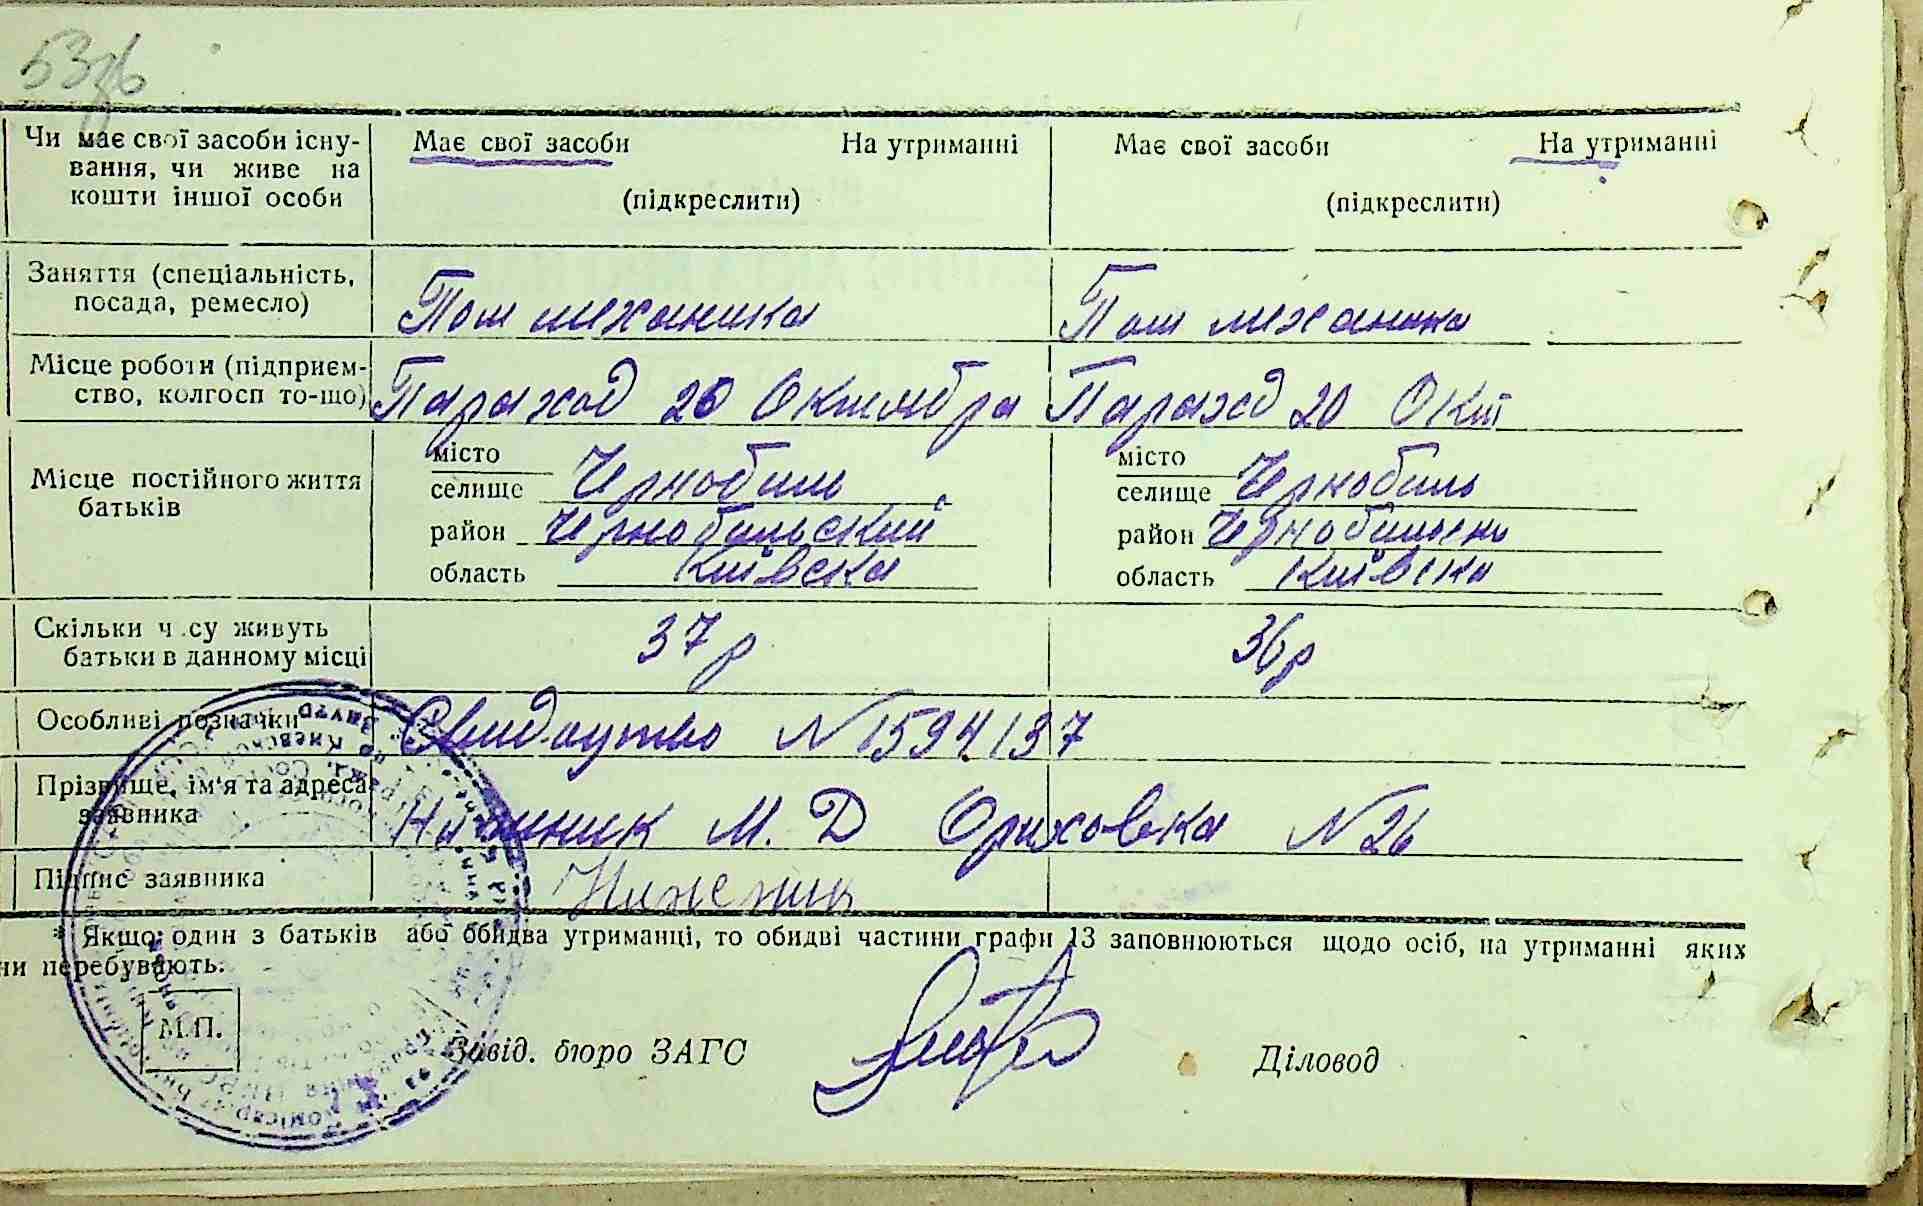 53зв
Чи має свої засоби існу- Має свої засоби На утриманні Має свої засоби На утриманні
вання, чи живе на
кошти іншої особи (підкреслити) (підкреслити)
Заняття (спеціальність,
посада, ремесло) Пом механика Пом механика
Місце роботи (підприєм-
ство, колгосп то-що) Параход 20 Октомбра Параход 20 Окт
місто місто
Місце постійного життя селище Чернобиль селище Чернобиль
батьків район Чернобильский район
область Київска область Київска
Скільки ч су живуть 37 р 36 р
батьки в данному місці
Особливі позначки Свидоцтво N 1594137
Прізвище, ім'я та адреса
заявника М. Д Ориховка N 26
Підпис заявника Ниженик
* Якщо один з батьків або обидва утриманці, то обидві частини графи 13 заповнюються щодо осіб, на утриманні яких
ни перебувають.
М.П.
Завід. бюро ЗАГС Діловод